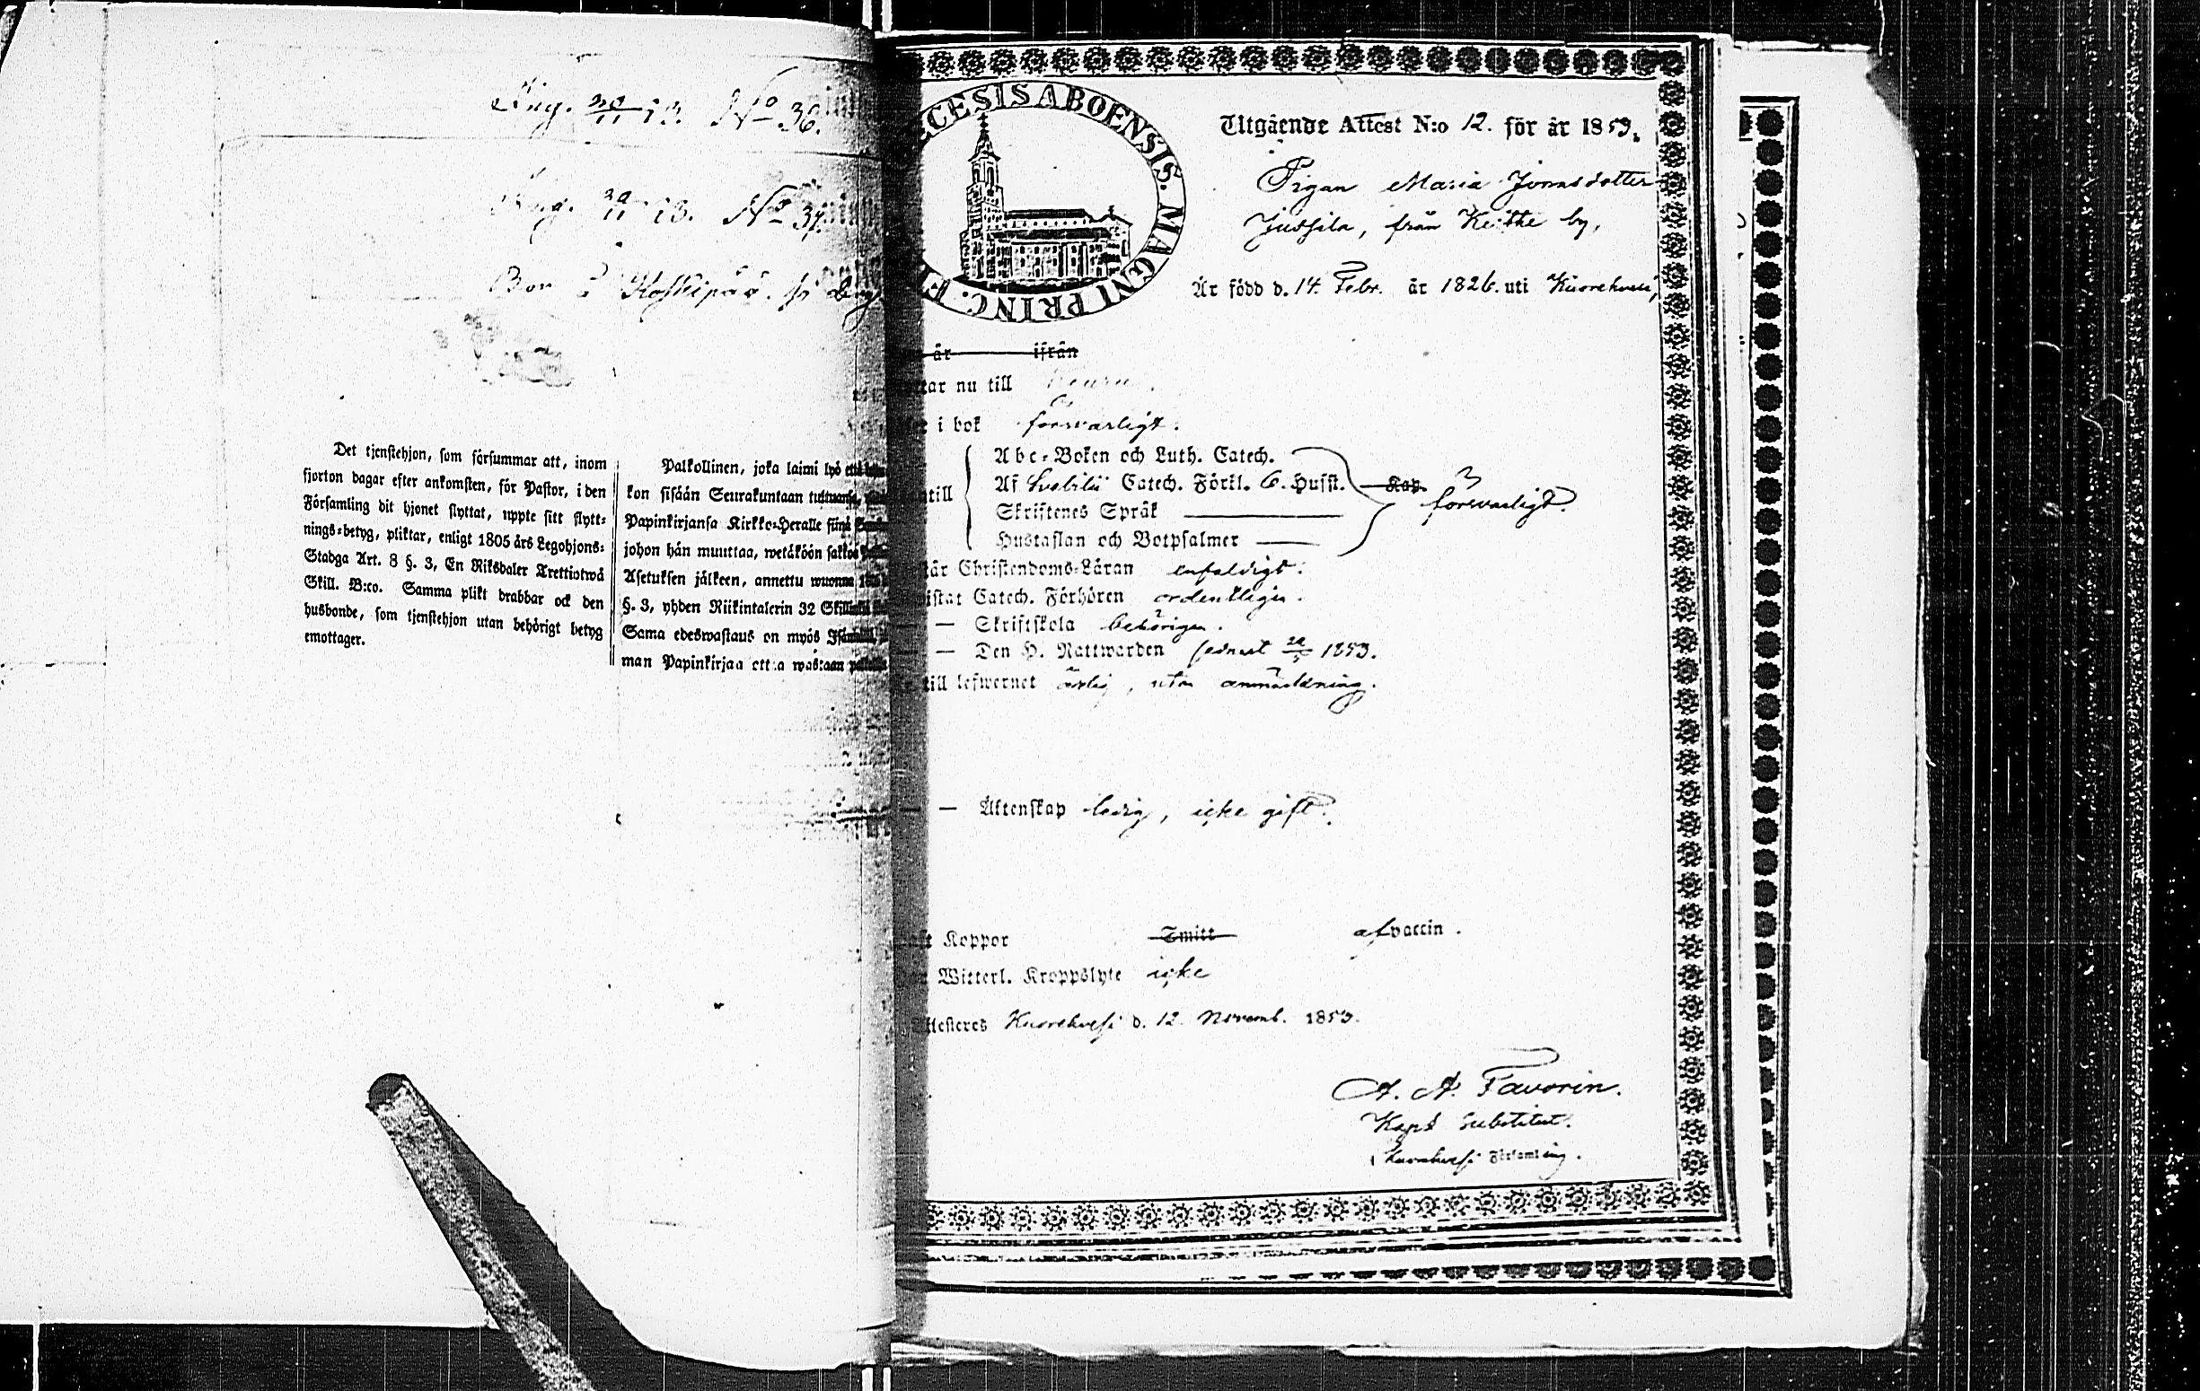 Ing. 20/11 53. No 36.
Ing. 20/11 53. No 37.
Bor i Koskipää
Det tjenstehjon, som försummar att, inom
fjorton dagar efter ankomsten, för Pastor, i den
Församling dit hjonet flyttat, uppte sitt flytt-
nings-betyg, pliktar, enligt 1805 års Legohjons-
Stadga Art. 8 §. 3, En Riksdaler Trettiotwå
Skill. B:co. Samma plikt drabbar ock den
husbonde, som tjenstehjon utan behörigt betyg
emottager.
Palkollinen, joka laimi lyö että
kon sisään Seurakuntaan tultuansa,
Papinkirjansa Kirkko-Heralle siinä
johon hän muuttaa, wetäköön sakkoa
Asetuksen jälkeen, annettu wuonna
§. 3, yhden Riikintalerin 32 Skillinkiä
Sama edeswastaus on myös Isännällä,
man Papinkirjaa ottaa wastaan
DIOECESIS ABOENSIS. MAGNI PRINC. FI
Utgående Attest N:o 12. för år 1853.
Pigan Maria Jonnsdotter
Jussila, från Keitke by,
Är född d. 14 Febr. år 1826. uti Kuorehvesi,
år ifrån
nu till Keuru.
i bok försvarligt.
Abc-Boken och Luth. Catech.
Af Svebilii Catech. Förkl. 6. Hufst. Kap. försvarligt.
Skriftenes Språk
Hustaflan och Botpsalmer
Christendoms-Läran enfaldigt.
Catech. Förhören ordentligen.
— Skriftskola behörigen.
— Den H. Nattwarden sednast 22/5 1853.
till lefwernet ärlig, utan anmärkning.
— Äktenskap ledig, icke gift.
Koppor Smitt af vaccin.
Witterl. Kroppslyte icke
Attesteres Kuorehvesi d. 12. Novemb. 1853.
A. A. Favorin.
Kaps Substitut.
Kuorehvesi Församling.